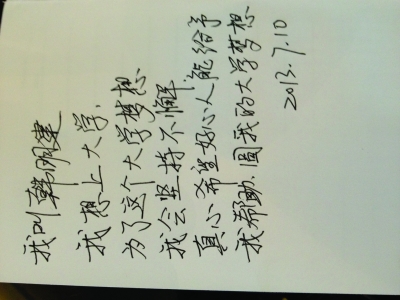 我叫韩明建
我想上大学.
为了这个大学梦想
我会坚持不懈.
真心希望好心人能给予
我帮助.圆我的大学梦想
2013.7.10